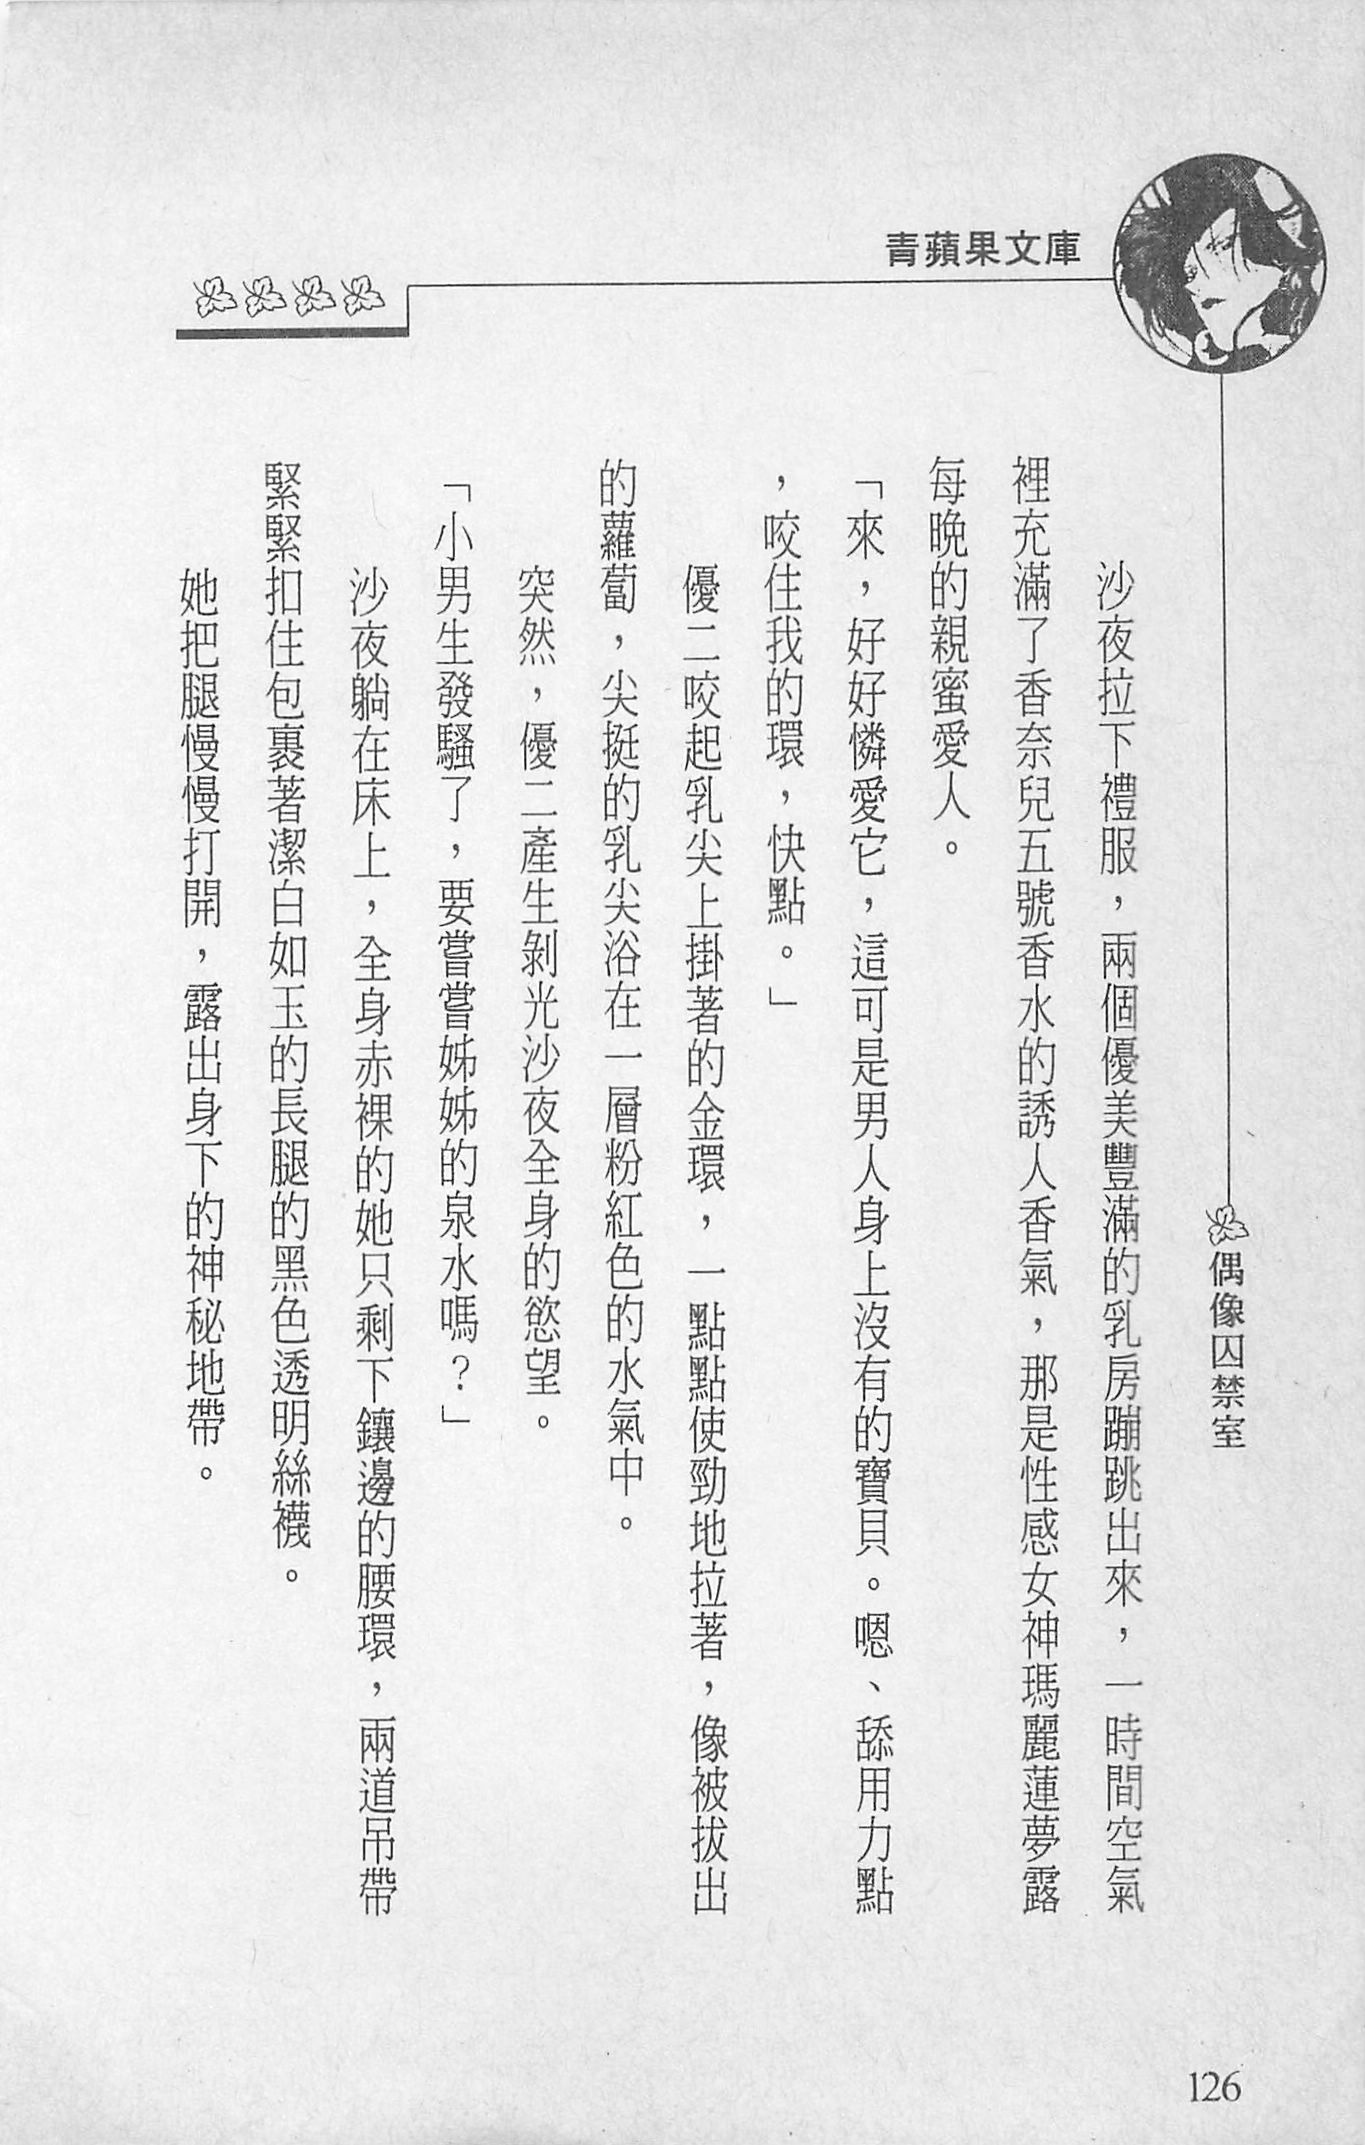 青蘋果文庫
偶像囚禁室
沙夜拉下禮服，兩個優美豐滿的乳房蹦跳出來，一時間空氣
裡充滿了香奈兒五號香水的誘人香氣，那是性感女神瑪麗蓮夢露
每晚的親蜜愛人。
「來，好好憐愛它，這可是男人身上沒有的寶貝。嗯、舔用力點
，咬住我的環，快點。」
優二咬起乳尖上掛著的金環，一點點使勁地拉著，像被拔出
的蘿蔔，尖挺的乳尖浴在一層粉紅色的水氣中。
突然，優二產生剝光沙夜全身的慾望。
「小男生發騷了，要嘗嘗姊姊的泉水嗎？」
沙夜躺在床上，全身赤裸的她只剩下鑲邊的腰環，兩道吊帶
緊緊扣住包裹著潔白如玉的長腿的黑色透明絲襪。
她把腿慢慢打開，露出身下的神秘地帶。
126